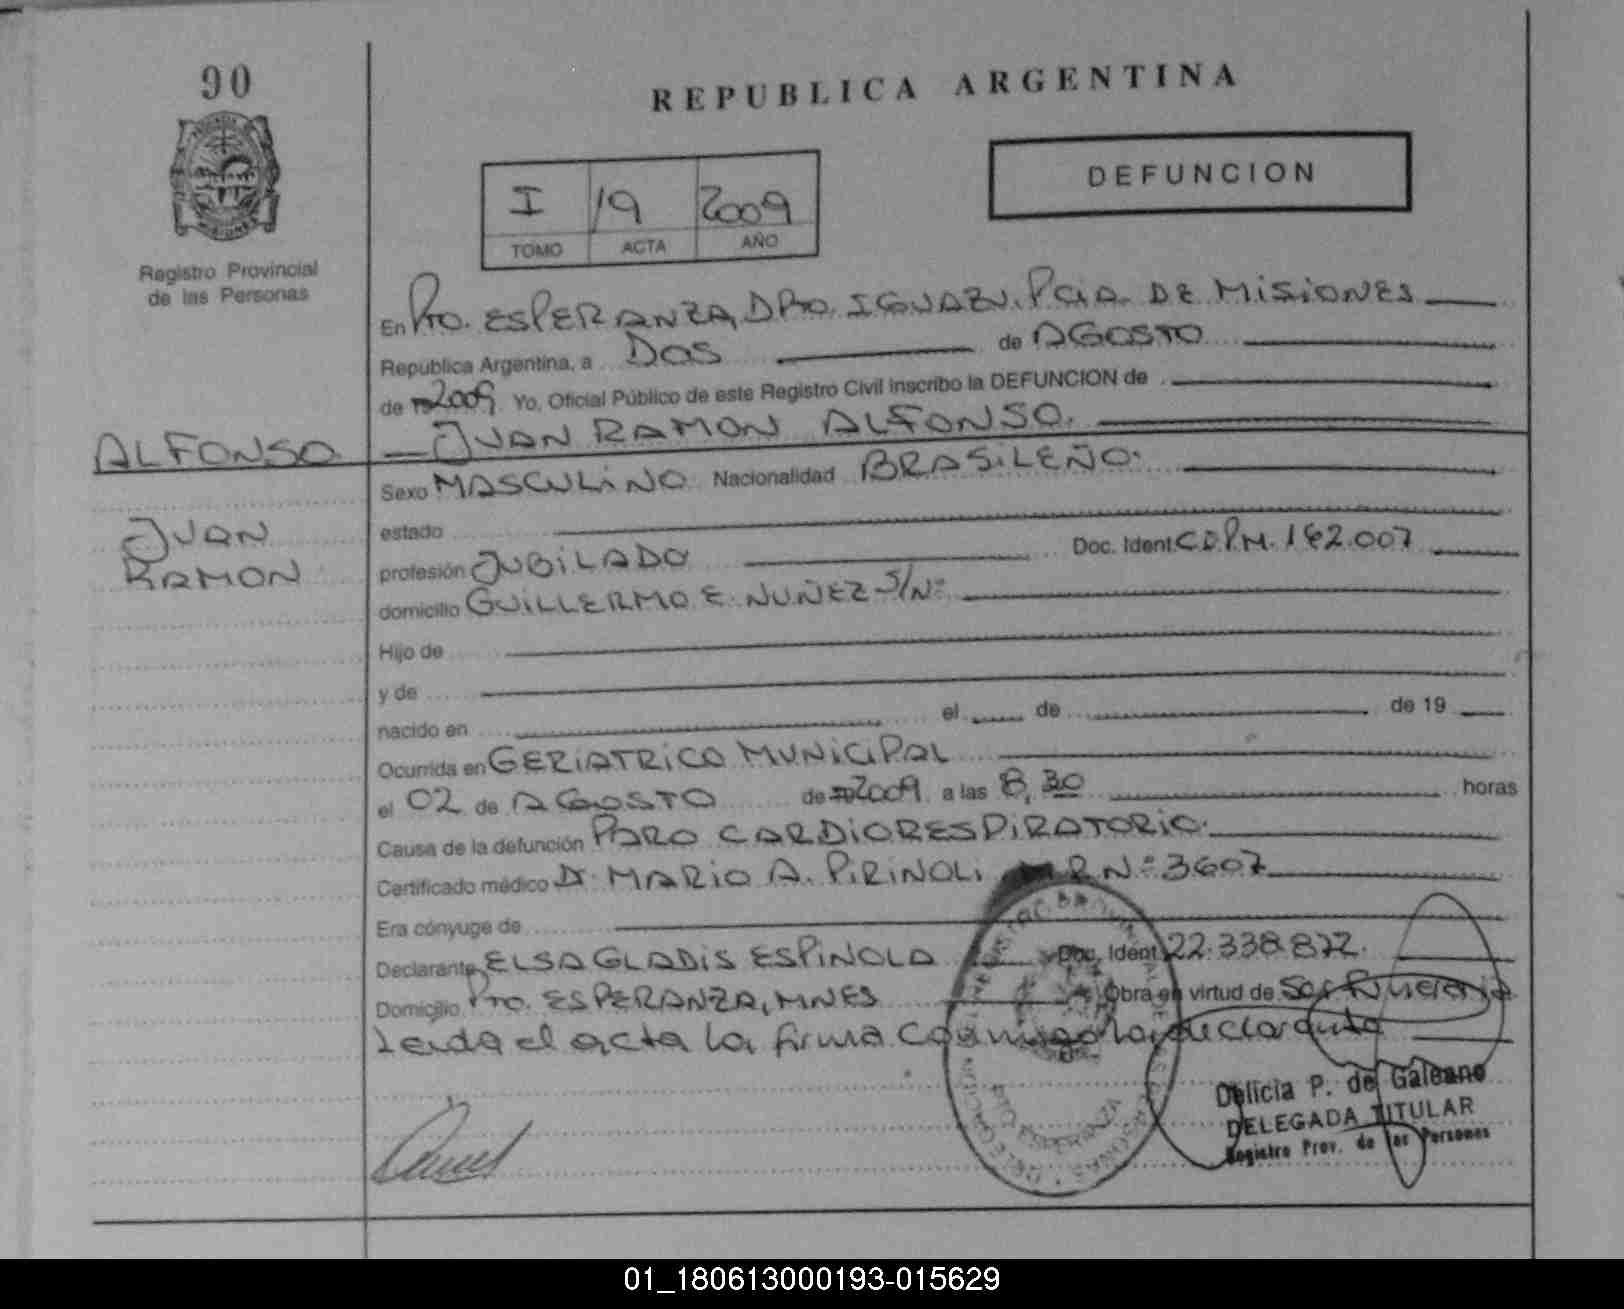 90
REPUBLICA ARGENTINA
DEFUNCION
I 19 2009
TOMO ACTA AÑO
MISIONES
Registro Provincial
de las Personas
En Pto. ESPERANZA, DPTO. IGUAZU. PCIA. DE MISIONES
República Argentina, a DOS de AGOSTO
de 2009 Yo, Oficial Público de este Registro Civil inscribo la DEFUNCION de
ALFONSO JUAN RAMON ALFONSO.
Sexo MASCULINO Nacionalidad BRASILEÑO.
JUAN
RAMON
estado
profesión JUBILADO Doc. Ident. C.D.P.M. 162.007
domicilio GUILLERMO E. NUÑEZ S/Nº
Hijo de
y de
nacido en el de de 19
Ocurrida en GERIATRICO MUNICIPAL
el 02 de AGOSTO de 2009 a las 8,30 horas
Causa de la defunción PARO CARDIORESPIRATORIO.
Certificado médico Dr. MARIO A. PIRINOLI R Nº 3607
Era cónyuge de
Declarante ELSA GLADIS ESPINOLA Doc. Ident. 22.338.872.
Domicilio Pto. ESPERANZA, MNES Obra en virtud de Ser funeraria
Leida el acta la firma conmigo la declarante
PTO ESPERANZA
Delicia P. de Galeano
DELEGADA TITULAR
Registro Prov. de las Personas
01_180613000193-015629